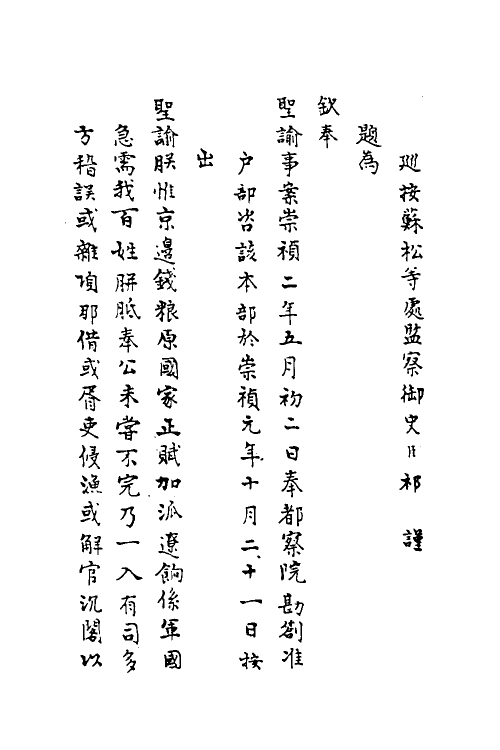 廵按蘇松等處監察御史臣祁　謹
題為
欽奉
聖諭事案崇禎二年五月初二日奉都察院勘劄准
户部咨該本部於崇禎元年十月二十一日按
出
聖諭朕惟京邊錢粮原國家正賦加派遼餉係軍國
急需我百姓胼胝奉公未嘗不完乃一入有司多
方稽誤或雜項那借或胥吏侵漁或解官沉閣以